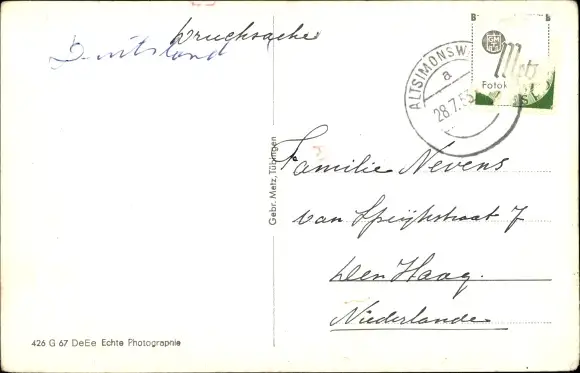 Drucksache
Deutsland
ALTSIMONSW
a
28.7.53
B B
Metz
Fotok
Familie Nevens
van Speijkstraat 7
Den Haag.
Niederlande
Gebr. Metz, Tübingen
426 G 67 DeEe Echte Photographie